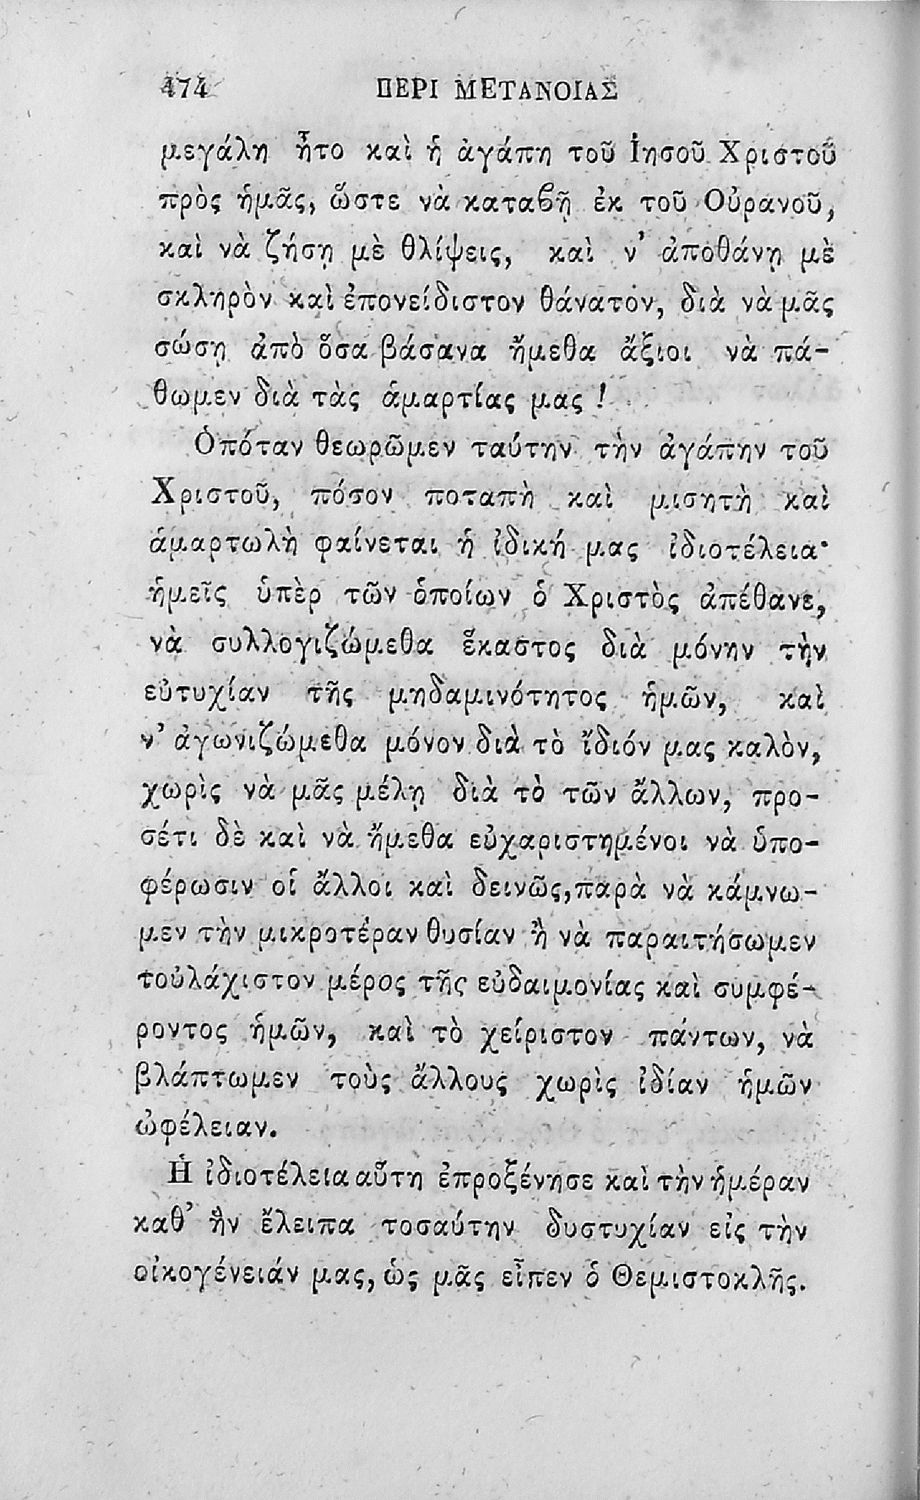 474 ΠΕΡΙ ΜΕΤΑΝΟΙΑΣ
μεγάλη ἦτο καὶ ἡ ἀγάπη τοῦ Ἰησοῦ Χριστοῦ
πρὸς ἡμᾶς, ὥστε νὰ καταβῇ ἐκ τοῦ Οὐρανοῦ,
καὶ νὰ ζήσῃ μὲ θλίψεις, καὶ ν’ ἀποθάνῃ μὲ
σκληρὸν καὶ ἐπονείδιστον θάνατον, διὰ νὰ μᾶς
σώσῃ ἀπὸ ὅσα βάσανα ἤμεθα ἄξιοι νὰ πά-
θωμεν διὰ τὰς ἁμαρτίας μας !
Ὁπόταν θεωρῶμεν ταύτην τὴν ἀγάπην τοῦ
Χριστοῦ, πόσον ποταπὴ καὶ μισητὴ καὶ
ἁμαρτωλὴ φαίνεται ἡ ἰδική μας ἰδιοτέλεια·
ἡμεῖς ὑπὲρ τῶν ὁποίων ὁ Χριστὸς ἀπέθανε,
νὰ συλλογιζώμεθα ἕκαστος διὰ μόνην τὴν
εὐτυχίαν τῆς μηδαμινότητος ἡμῶν, καὶ
ν’ ἀγωνιζώμεθα μόνον διὰ τὸ ἴδιόν μας καλὸν,
χωρὶς νὰ μᾶς μέλῃ διὰ τὸ τῶν ἄλλων, προ-
σέτι δὲ καὶ νὰ ἤμεθα εὐχαριστημένοι νὰ ὑπο-
φέρωσιν οἱ ἄλλοι καὶ δεινῶς, παρὰ νὰ κάμνω-
μεν τὴν μικροτέραν θυσίαν ἢ νὰ παραιτήσωμεν
τοὐλάχιστον μέρος τῆς εὐδαιμονίας καὶ συμφέ-
ροντος ἡμῶν, καὶ τὸ χείριστον πάντων, νὰ
βλάπτωμεν τοὺς ἄλλους χωρὶς ἰδίαν ἡμῶν
ὠφέλειαν.
Ἡ ἰδιοτέλεια αὕτη ἐπροξένησε καὶ τὴν ἡμέραν
καθ’ ἣν ἔλειπα τοσαύτην δυστυχίαν εἰς τὴν
οἰκογένειάν μας, ὡς μᾶς εἶπεν ὁ Θεμιστοκλῆς.